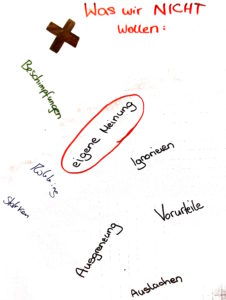 Was wir NICHT
wollen:
Beschimpfungen
eigene Meinung
Ignorieren
Vorurteile
Ausgrenzung
Auslachen